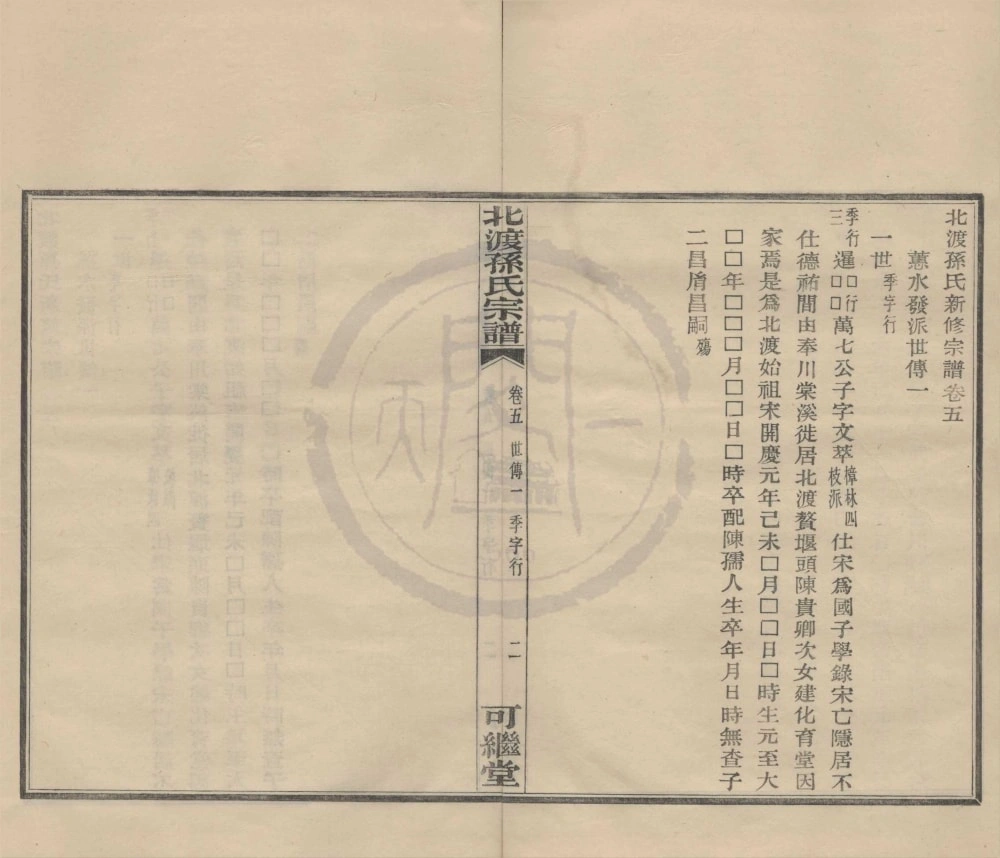 北渡孫氏新修宗譜卷五
蕙水發派世傳一
一世季字行
季行三暹□行□□萬七公子字文萃樟林四枝派仕宋爲國子學錄宋亡隱居不
仕德祐間由奉川棠溪徙居北渡贅堰頭陳貴卿次女建化育堂因
家焉是爲北渡始祖宋開慶元年己未□月□□日□時生元至大
□□年□□□月□□日□時卒配陳孺人生卒年月日時無查子
二昌屑昌嗣殤
北渡孫氏宗譜
卷五
世傳一
季字行
可繼堂